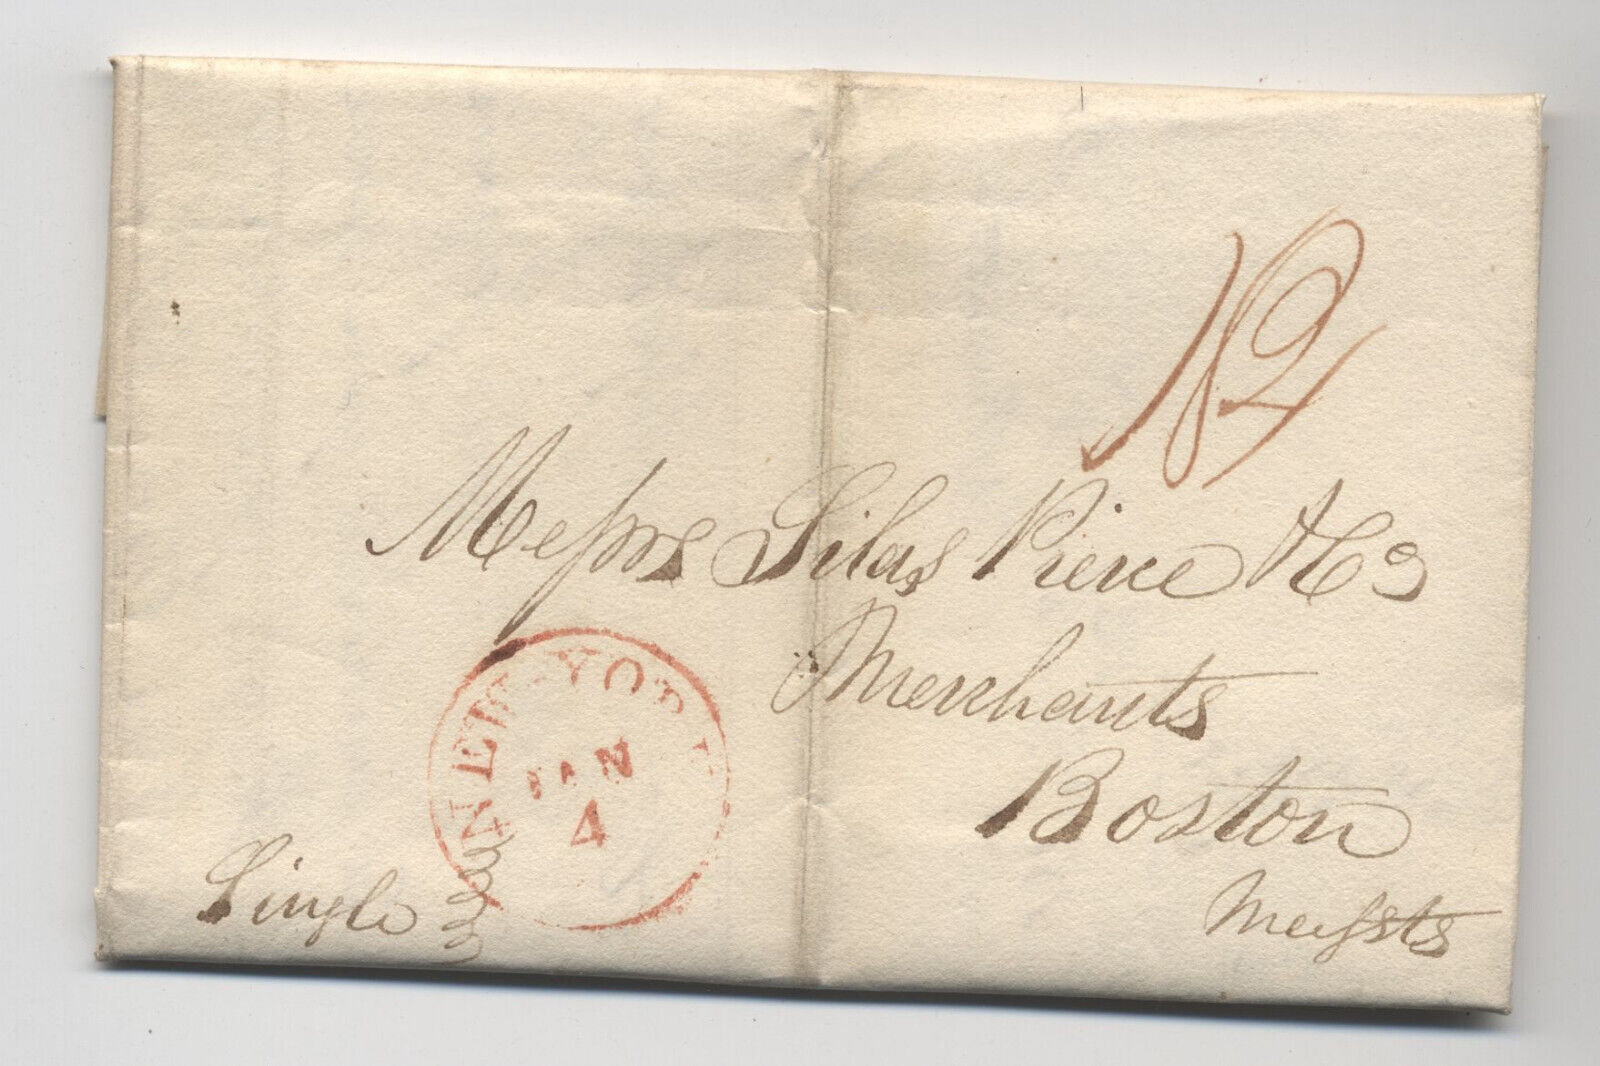 12
Messrs Silas Pierce & Co
Merchants
Boston
Massts
NEW-YORK
JAN
4
Single